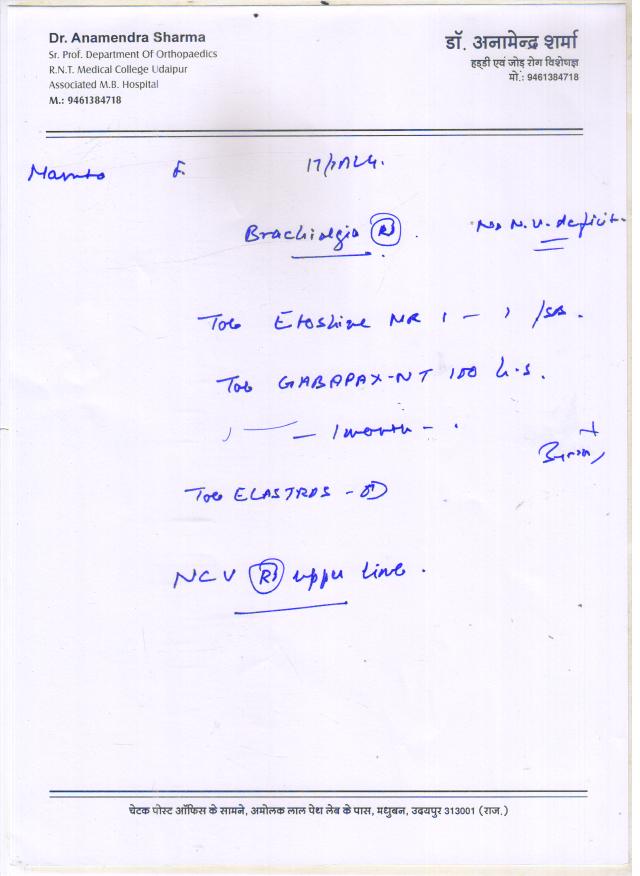 Dr. Anamendra Sharma
Sr. Prof. Department Of Orthopaedics
R.N.T. Medical College Udaipur
Associated M.B. Hospital
M.: 9461384718
डॉ. अनामेन्द्र शर्मा
हड्डी एवं जोड़ रोग विशेषज्ञ
मो.: 9461384718
F.
Brachialgia (R) .
No N.V. deficit.
Tab Etoshine MR 1 - 1
Tab GABAPAX-NT 100 h.s.
1 month
Tab ELASTROS - OD
NCV (R) upper limb .
चेटक पोस्ट ऑफिस के सामने, अमोलक लाल पेथ लेब के पास, मधुबन, उदयपुर 313001 (राज.)